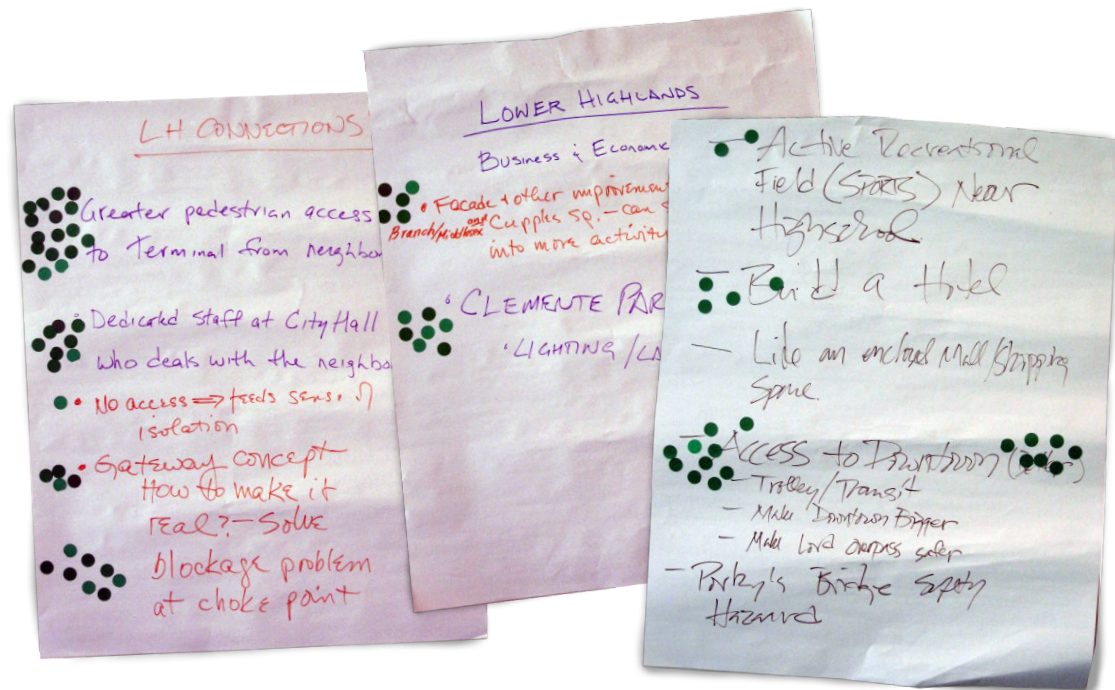 LH CONNECTIONS
Greater pedestrian access
to Terminal from neighbo
• Dedicated Staff at City Hall
who deals with the neighbo
• No access ⇒ feeds sense of
isolation
• Gateway concept
How to make it
real? – Solve
blockage problem
at choke point
LOWER HIGHLANDS
Business & Economic
• Facade & other improvement
Branch/Middlesex and Cupples Sq. – can
into more activity
• CLEMENTE PAR
• LIGHTING / LA
– Active Recreational
Field (SPORTS) Near
Highschool
– Build a Hotel
– Like an enclosed Mall/Shopping
Space.
– Access to Downtown
– Trolley/Transit
– Make Downtown Bigger
– Make Lord overpass safer
– Bridge Safety
Hazard